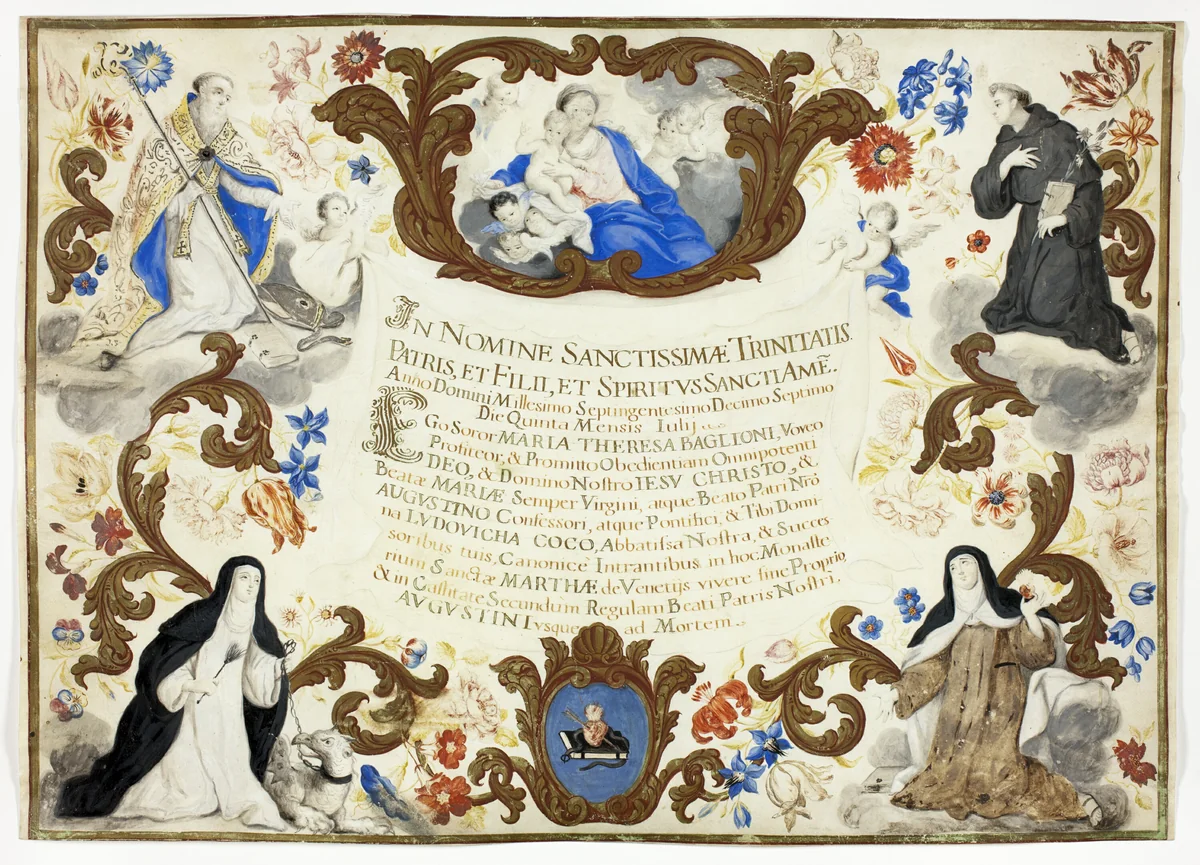 IN NOMINE SANCTISSIMÆ TRINITATIS.
PATRIS, ET FILII, ET SPIRITVS SANCTI AMẼ.
Anno Domini Millesimo Septingentesimo Decimo Septimo
Die Quinta Mensis Iulij
EGo Soror MARIA THERESA BAGLIONI, Voveo
Profiteor, & Promitto Obedientiam Omnipotenti
DEO, & Domino Nostro IESV CHRISTO, &
Beatæ MARIÆ Semper Virgini, atque Beato Patri Nrõ
AUGVSTINO Confessori, atque Pontifici, & Tibi Domi-
na LVDOVICHA COCO, Abbatissa Nostra, & Succes-
soribus tuis, Canonicè Intrantibus in hoc Monaste
rium Sanctæ MARTHÆ de Venetijs vivere sine Proprio
& in Castitate Secundum Regulam Beati Patris Nostri.
AVGVSTINI vsque ad Mortem